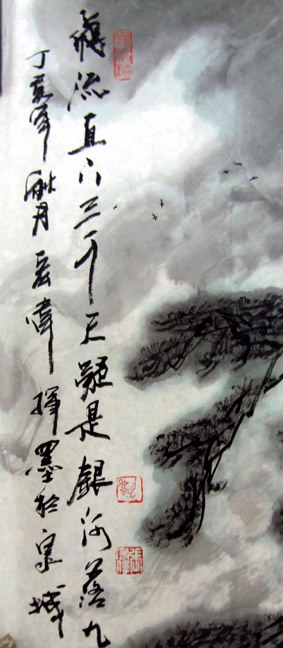 飛流直下三千天疑是銀河落九
丁亥年秋月宏偉揮墨於泉城